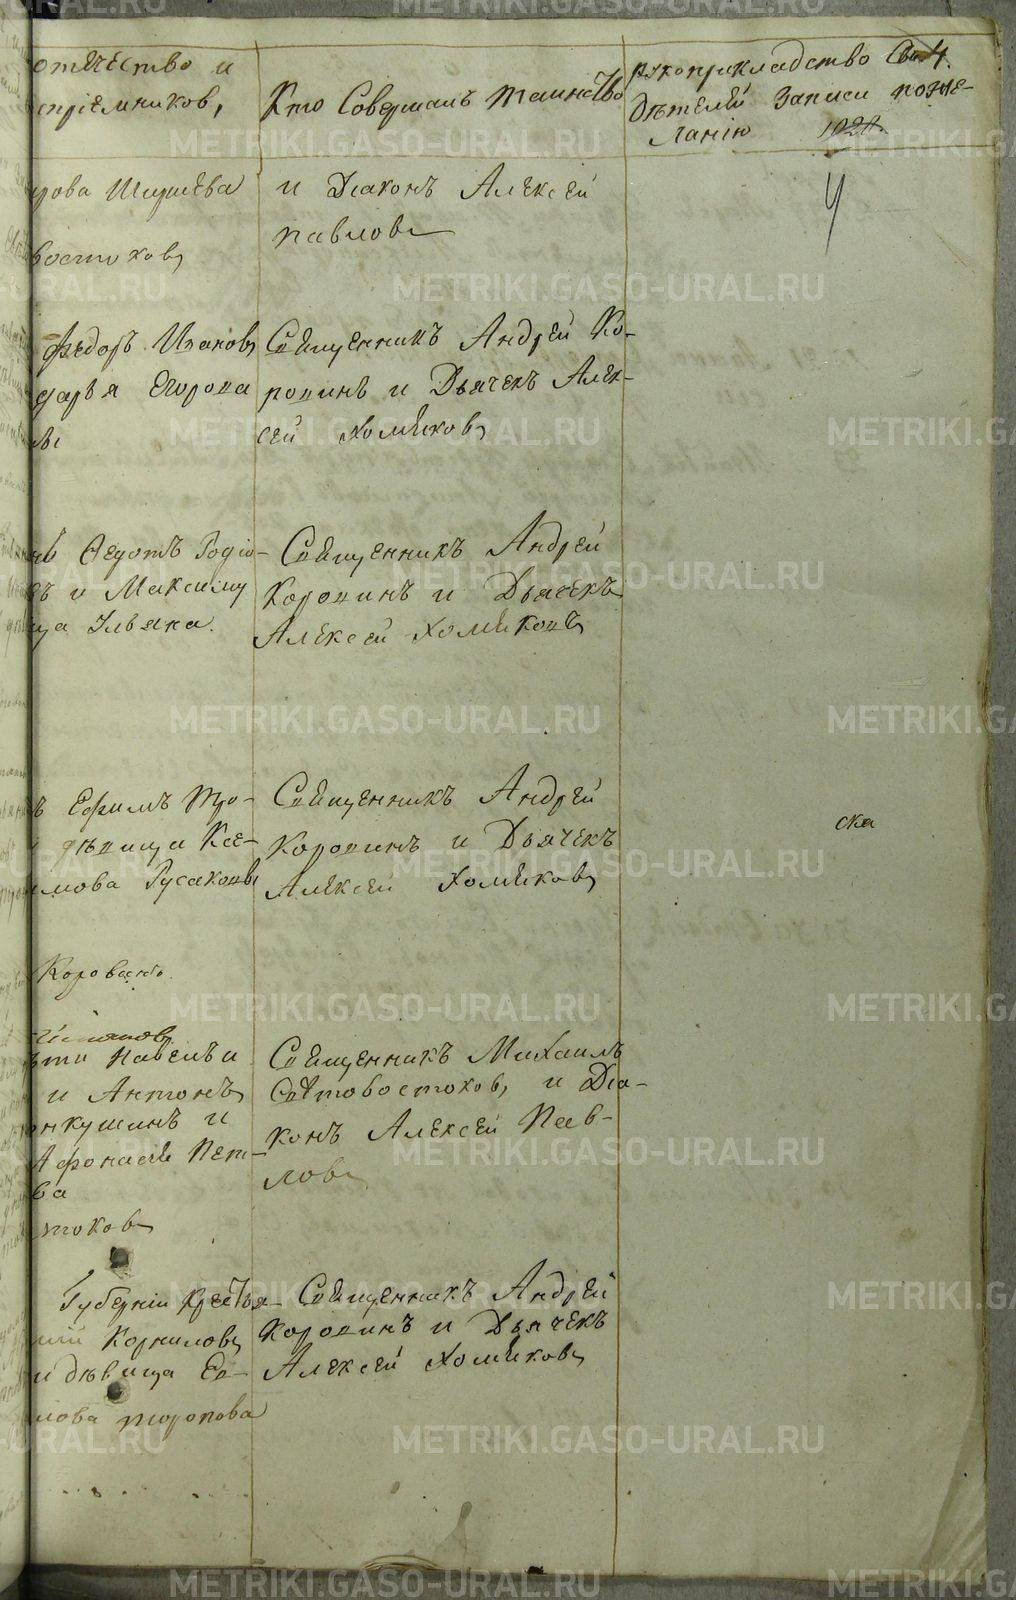 отечество и
спріемников,
Кто Совершалъ таинство
Рукоприкладство Сви-
дѣтелей записи поже-
ланію
4.
1020.
4
рова Ширяева
востоков
и Діаконъ Алексей
павлов
Федоръ Иванов
дарья Егорова
Священникъ Андрей Ко-
ровинъ и Дьячекъ Алек-
сей Хомяков
Федотъ Родіо-
и Максиму
ца Ульяна.
Священникъ Андрей
Коровинъ и Дьячекъ
Алексей Хомяковъ
Ефимъ Тро-
дѣвица Ксе-
мова Русаковы
Священникъ Андрей
Коровинъ и Дьячекъ
Алексей Хомяков
ска
павелъ и
и Антонъ
нкушинъ и
Афонасій Пет-
ва
токов
Священникъ Михаилъ
Святовостоков, и Діа-
конъ Алексей Пав-
лов
Губерніи Крестья-
Корнилов
и дѣвица Ев-
лова торопова
Священникъ Андрей
Коровинъ и Дьячекъ
Алексей Хомяков
METRIKI.GASO-URAL.RU